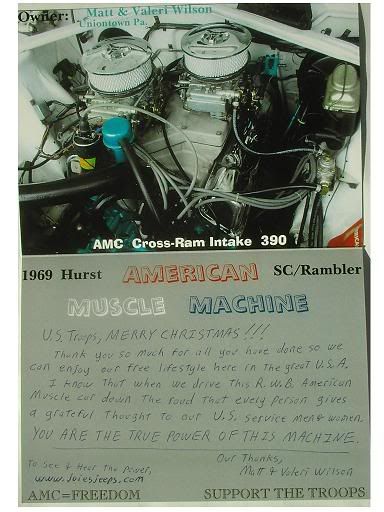 Owner: Matt & Valeri Wilson
Uniontown Pa.
AMC Cross-Ram Intake 390
1969 Hurst AMERICAN SC/Rambler
MUSCLE MACHINE
U.S. Troops, MERRY CHRISTMAS!!!
Thank you so much for all you have done so we
can enjoy our free lifestyle here in the great U.S.A.
I know that when we drive this R.W.B. American
Muscle car down the road that every person gives
a grateful thought to our U.S. service men & women.
YOU ARE THE TRUE POWER OF THIS MACHINE.
Our Thanks,
Matt & Valeri Wilson
To See & Hear the Power,
www.joiesjeeps.com
AMC=FREEDOM SUPPORT THE TROOPS